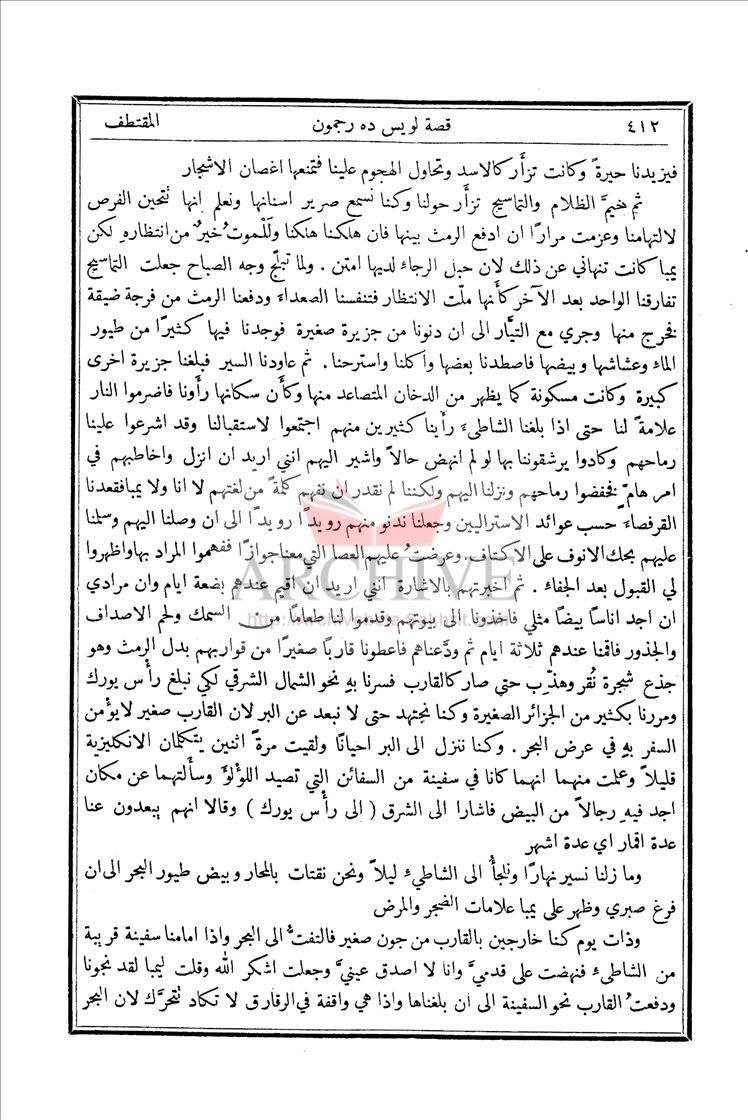 ٤١٢ قصة لويس ده رجمون المقتطف
فيزيدنا حيرةً وكانت تزأَر كالاسد وتحاول الهجوم علينا فتمنعها اغصان الاشجار
ثم خيَّم الظلام والتماسيح تزأَر حولنا وكنا نسمع صرير اسنانها ونعلم انها تتحين الفرص
لالتهامنا وعزمت مرارًا ان ادفع الرمث بينها فان هلكنا هلكنا وللموتُ خيرٌ من انتظاره لكن
يمبا كانت تنهاني عن ذلك لان حبل الرجاء لديها امتن . ولما تبلَّج وجه الصباح جعلت التماسيح
تفارقنا الواحد بعد الآخر كأَنها ملّت الانتظار فتنفسنا الصعداء ودفعنا الرمث من فرجة ضيقة
فخرج منها وجرى مع التيَّار الى ان دنونا من جزيرة صغيرة فوجدنا فيها كثيرًا من طيور
الماء وعشاشها وبيضها فاصطدنا بعضها واكلنا واسترحنا . ثم عاودنا السير فبلغنا جزيرة اخرى
كبيرة وكانت مسكونة كما يظهر من الدخان المتصاعد منها وكأَن سكانها رأَونا فاضرموا النار
علامةً لنا حتى اذا بلغنا الشاطئ رأَينا كثيرين منهم اجتمعوا لاستقبالنا وقد اشرعوا علينا
رماحهم وكادوا يرشقوننا بها لو لم انهض حالاً واشير اليهم انني اريد ان انزل واخاطبهم في
امر هامّ فخفضوا رماحهم ونزلنا اليهم ولكننا لم نقدر ان نفهم كلمةً من لغتهم لا انا ولا يمبا فقعدنا
القرفصاء حسب عوائد الاستراليين وجعلنا ندنو منهم رويدًا رويدًا الى ان وصلنا اليهم وسلمنا
عليهم بحك الانوف على الاكتاف وعرضتُ عليهم العصا التي معنا جوازًا ففهموا المراد بها واظهروا
لي القبول بعد الجفاء . ثم اخبرتهم بالاشارة انني اريد ان اقيم عندهم بضعة ايام وان مرادي
ان اجد اناسًا بيضًا مثلي فاخذونا الى بيوتهم وقدموا لنا طعامًا من السمك ولحم الاصداف
والجذور فاقمنا عندهم ثلاثة ايام ثم ودَّعناهم فاعطونا قاربًا صغيرًا من قواربهم بدل الرمث وهو
جذع شجرة نُقر وهذّب حتى صار كالقارب فسرنا به نحو الشمال الشرقي لكي نبلغ رأْس يورك
ومررنا بكثير من الجزائر الصغيرة وكنا نجتهد حتى لا نبعد عن البر لان القارب صغير لا يؤْمن
السفر به في عرض البحر . وكنا ننزل الى البر احيانًا ولقيت مرةً اثنين يتكلمان الانكليزية
قليلاً وعلمت منهما انهما كانا في سفينة من السفائن التي تصيد اللؤْلؤَ وسأَلتهما عن مكان
اجد فيه رجالاً من البيض فاشارا الى الشرق ( الى رأْس يورك ) وقالا انهم يبعدون عنا
عدة اقمار اي عدة اشهر
وما زلنا نسير نهارًا ونلجأُ الى الشاطئ ليلاً ونحن نقتات بالمحار وبيض طيور البحر الى ان
فرغ صبري وظهر على يمبا علامات الضجر والمرض
وذات يوم كنا خارجين بالقارب من جون صغير فالتفتُّ الى البحر واذا امامنا سفينة قريبة
من الشاطئ فنهضت على قدميَّ وانا لا اصدق عينيَّ وجعلت اشكر الله وقلت ليمبا لقد نجونا
ودفعتُ القارب نحو السفينة الى ان بلغناها واذا هي واقفة في الرقارق لا تكاد تتحرَّك لان البحر
ARCHIVE